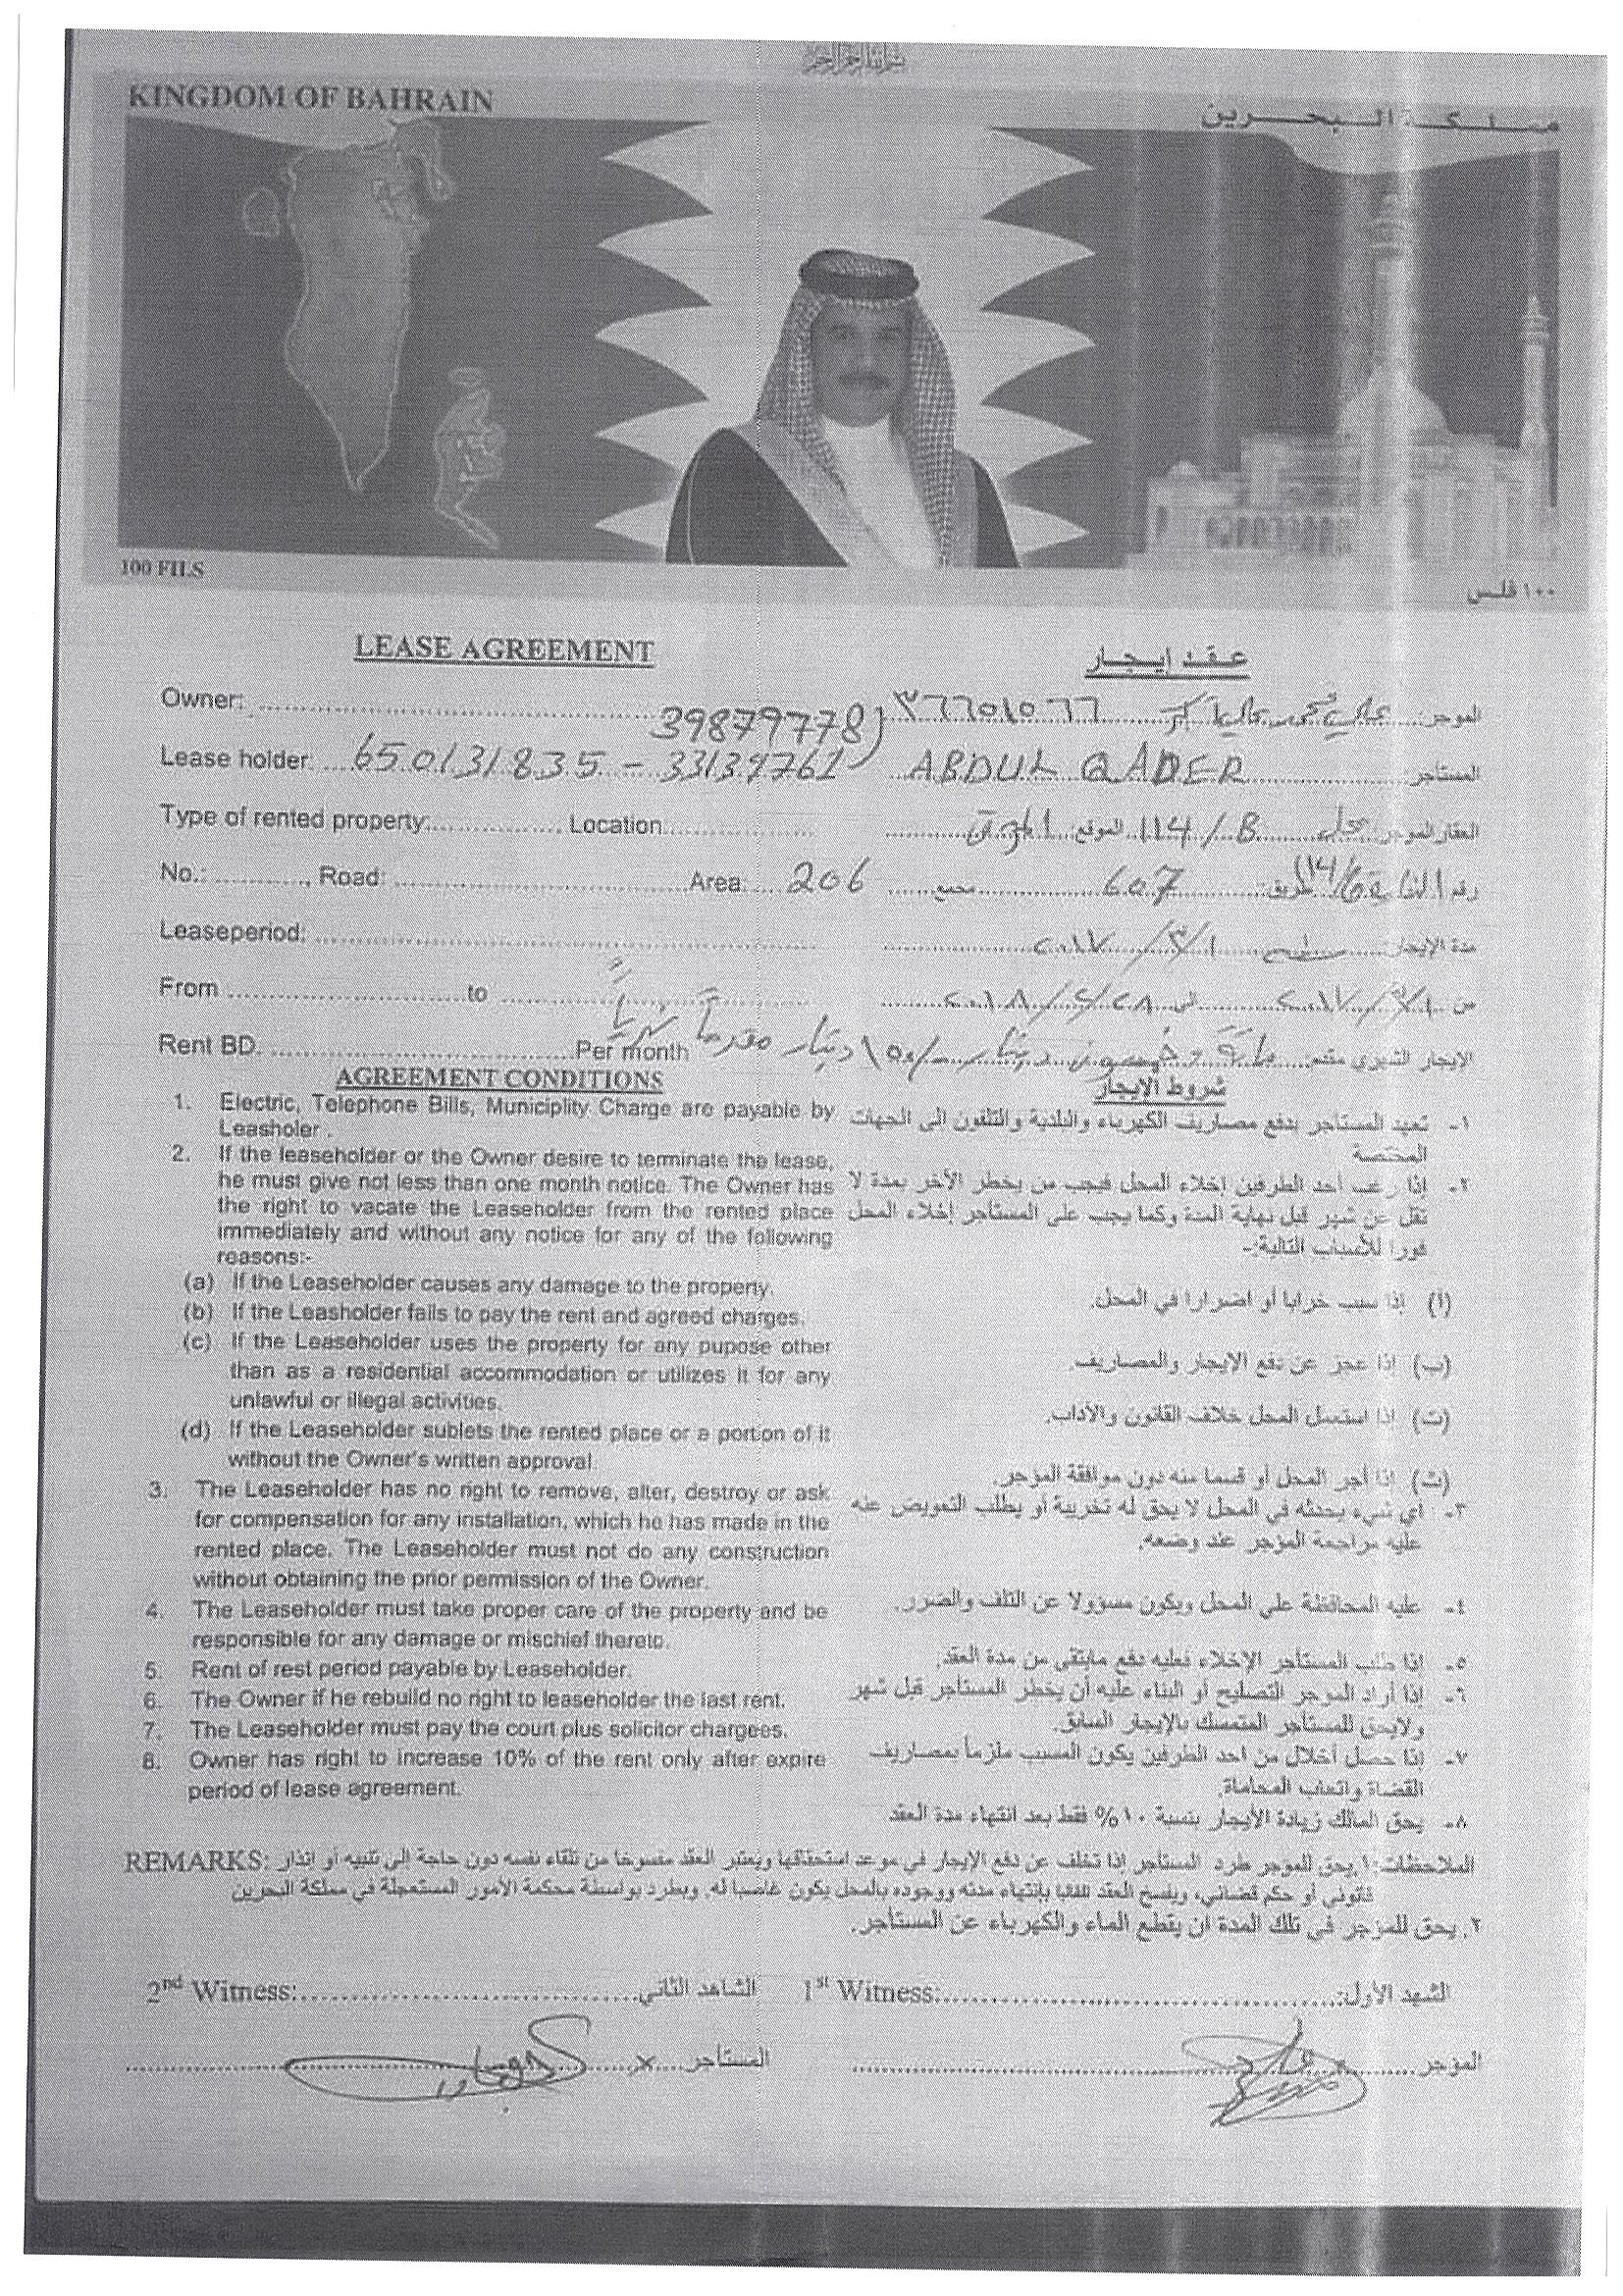 KINGDOM OF BAHRAIN
مملكة البحرين
100 FILS
١٠٠ فلس
LEASE AGREEMENT
عقد إيجار
Owner:
39879778
٣٦٦٥١٥٦٦
علي محمد علي
الموجر:
Lease holder: 650131835 - 33139761 ABDUL QADER المستاجر:
Type of rented property: Location
العقار الموجر: محل 114/B الموقع
No.: , Road: Area: 206
مجمع 607 طريق:
Leaseperiod:
مدة الإيجار: سنه ٢٠١٧/٣/١
From to
من ٢٠١٧/٣/١ الى ٢٠١٨/٢/٢٨
Rent BD. Per month
الإيجار الشهري مائة و خمسون دينار ١٥٠/ دينار مقدماً شهرياً
AGREEMENT CONDITIONS
1. Electric, Telephone Bills, Municiplity Charge are payable by
Leasholer .
2. If the leaseholder or the Owner desire to terminate the lease,
he must give not less than one month notice. The Owner has
the right to vacate the Leaseholder from the rented place
immediately and without any notice for any of the following
reasons:-
(a) If the Leaseholder causes any damage to the property.
(b) If the Leasholder fails to pay the rent and agreed charges.
(c) If the Leaseholder uses the property for any pupose other
than as a residential accommodation or utilizes it for any
unlawful or illegal activities.
(d) If the Leaseholder sublets the rented place or a portion of it
without the Owner's written approval.
3. The Leaseholder has no right to remove, alter, destroy or ask
for compensation for any installation, which he has made in the
rented place. The Leaseholder must not do any construction
without obtaining the prior permission of the Owner.
4. The Leaseholder must take proper care of the property and be
responsible for any damage or mischief thereto.
5. Rent of rest period payable by Leaseholder.
6. The Owner if he rebuild no right to leaseholder the last rent.
7. The Leaseholder must pay the court plus solicitor chargees.
8. Owner has right to increase 10% of the rent only after expire
period of lease agreement.
شروط الإيجار
١- تعهد المستاجر بدفع مصاريف الكهرباء والبلدية والتلفون الى الجهات
المختصة
٢- إذا رغب أحد الطرفين إخلاء المحل فيجب من يخطر الأخر بمدة لا
تقل عن شهر قبل نهاية المدة وكما يجب على المستاجر إخلاء المحل
فورا للأسباب التالية:-
(أ) إذا سبب خرابا أو اضرارا في المحل.
(ب) اذا عجز عن دفع الايجار والمصاريف.
(ت) اذا استعمل المحل خلاف القانون والاداب.
(ث) اذا أجر المحل أو قسما منه دون موافقة المؤجر.
٣- اي شيء يحدثه في المحل لا يحق له تخريبة أو يطلب التعويض عنه
عليه مراجعة المؤجر عند وضعه.
٤- عليه المحافظة على المحل ويكون مسؤولا عن التلف والضرر.
٥- إذا طلب المستاجر الإخلاء فعليه دفع مايتقى من مدة العقد.
٦- إذا أراد الموجر التصليح أو البناء عليه أن يخطر المستأجر قبل شهر
ولايحق للمستأجر المتمسك بالإيجار السابق.
٧- إذا حصل أخلال من احد الطرفين يكون المسبب ملزماً بمصاريف
القضاة واتعاب المحاماة.
٨- يحق المالك زيادة الأيجار بنسبة ١٠% فقط بعد انتهاء مدة العقد
REMARKS: الملاحظات: ١. يحق للمؤجر طرد المستأجر إذا تخلف عن دفع الايجار في موعد استحقاقها ويعتبر العقد مفسوخا من تلقاء نفسه دون حاجة الى تنبيه أو إنذار
قانوني أو حكم قضائي، ويفسخ العقد تلقائيا بإنتهاء مدته ووجوده بالمحل يكون غاصبا له. ويطرد بواسطة محكمة الأمور المستعجلة في مملكة البحرين
٢. يحق للمؤجر في تلك المدة ان يقطع الماء والكهرباء عن المستأجر.
2nd Witness: الشاهد الثاني 1st Witness: الشهد الأول:
المستاجر x
المؤجر